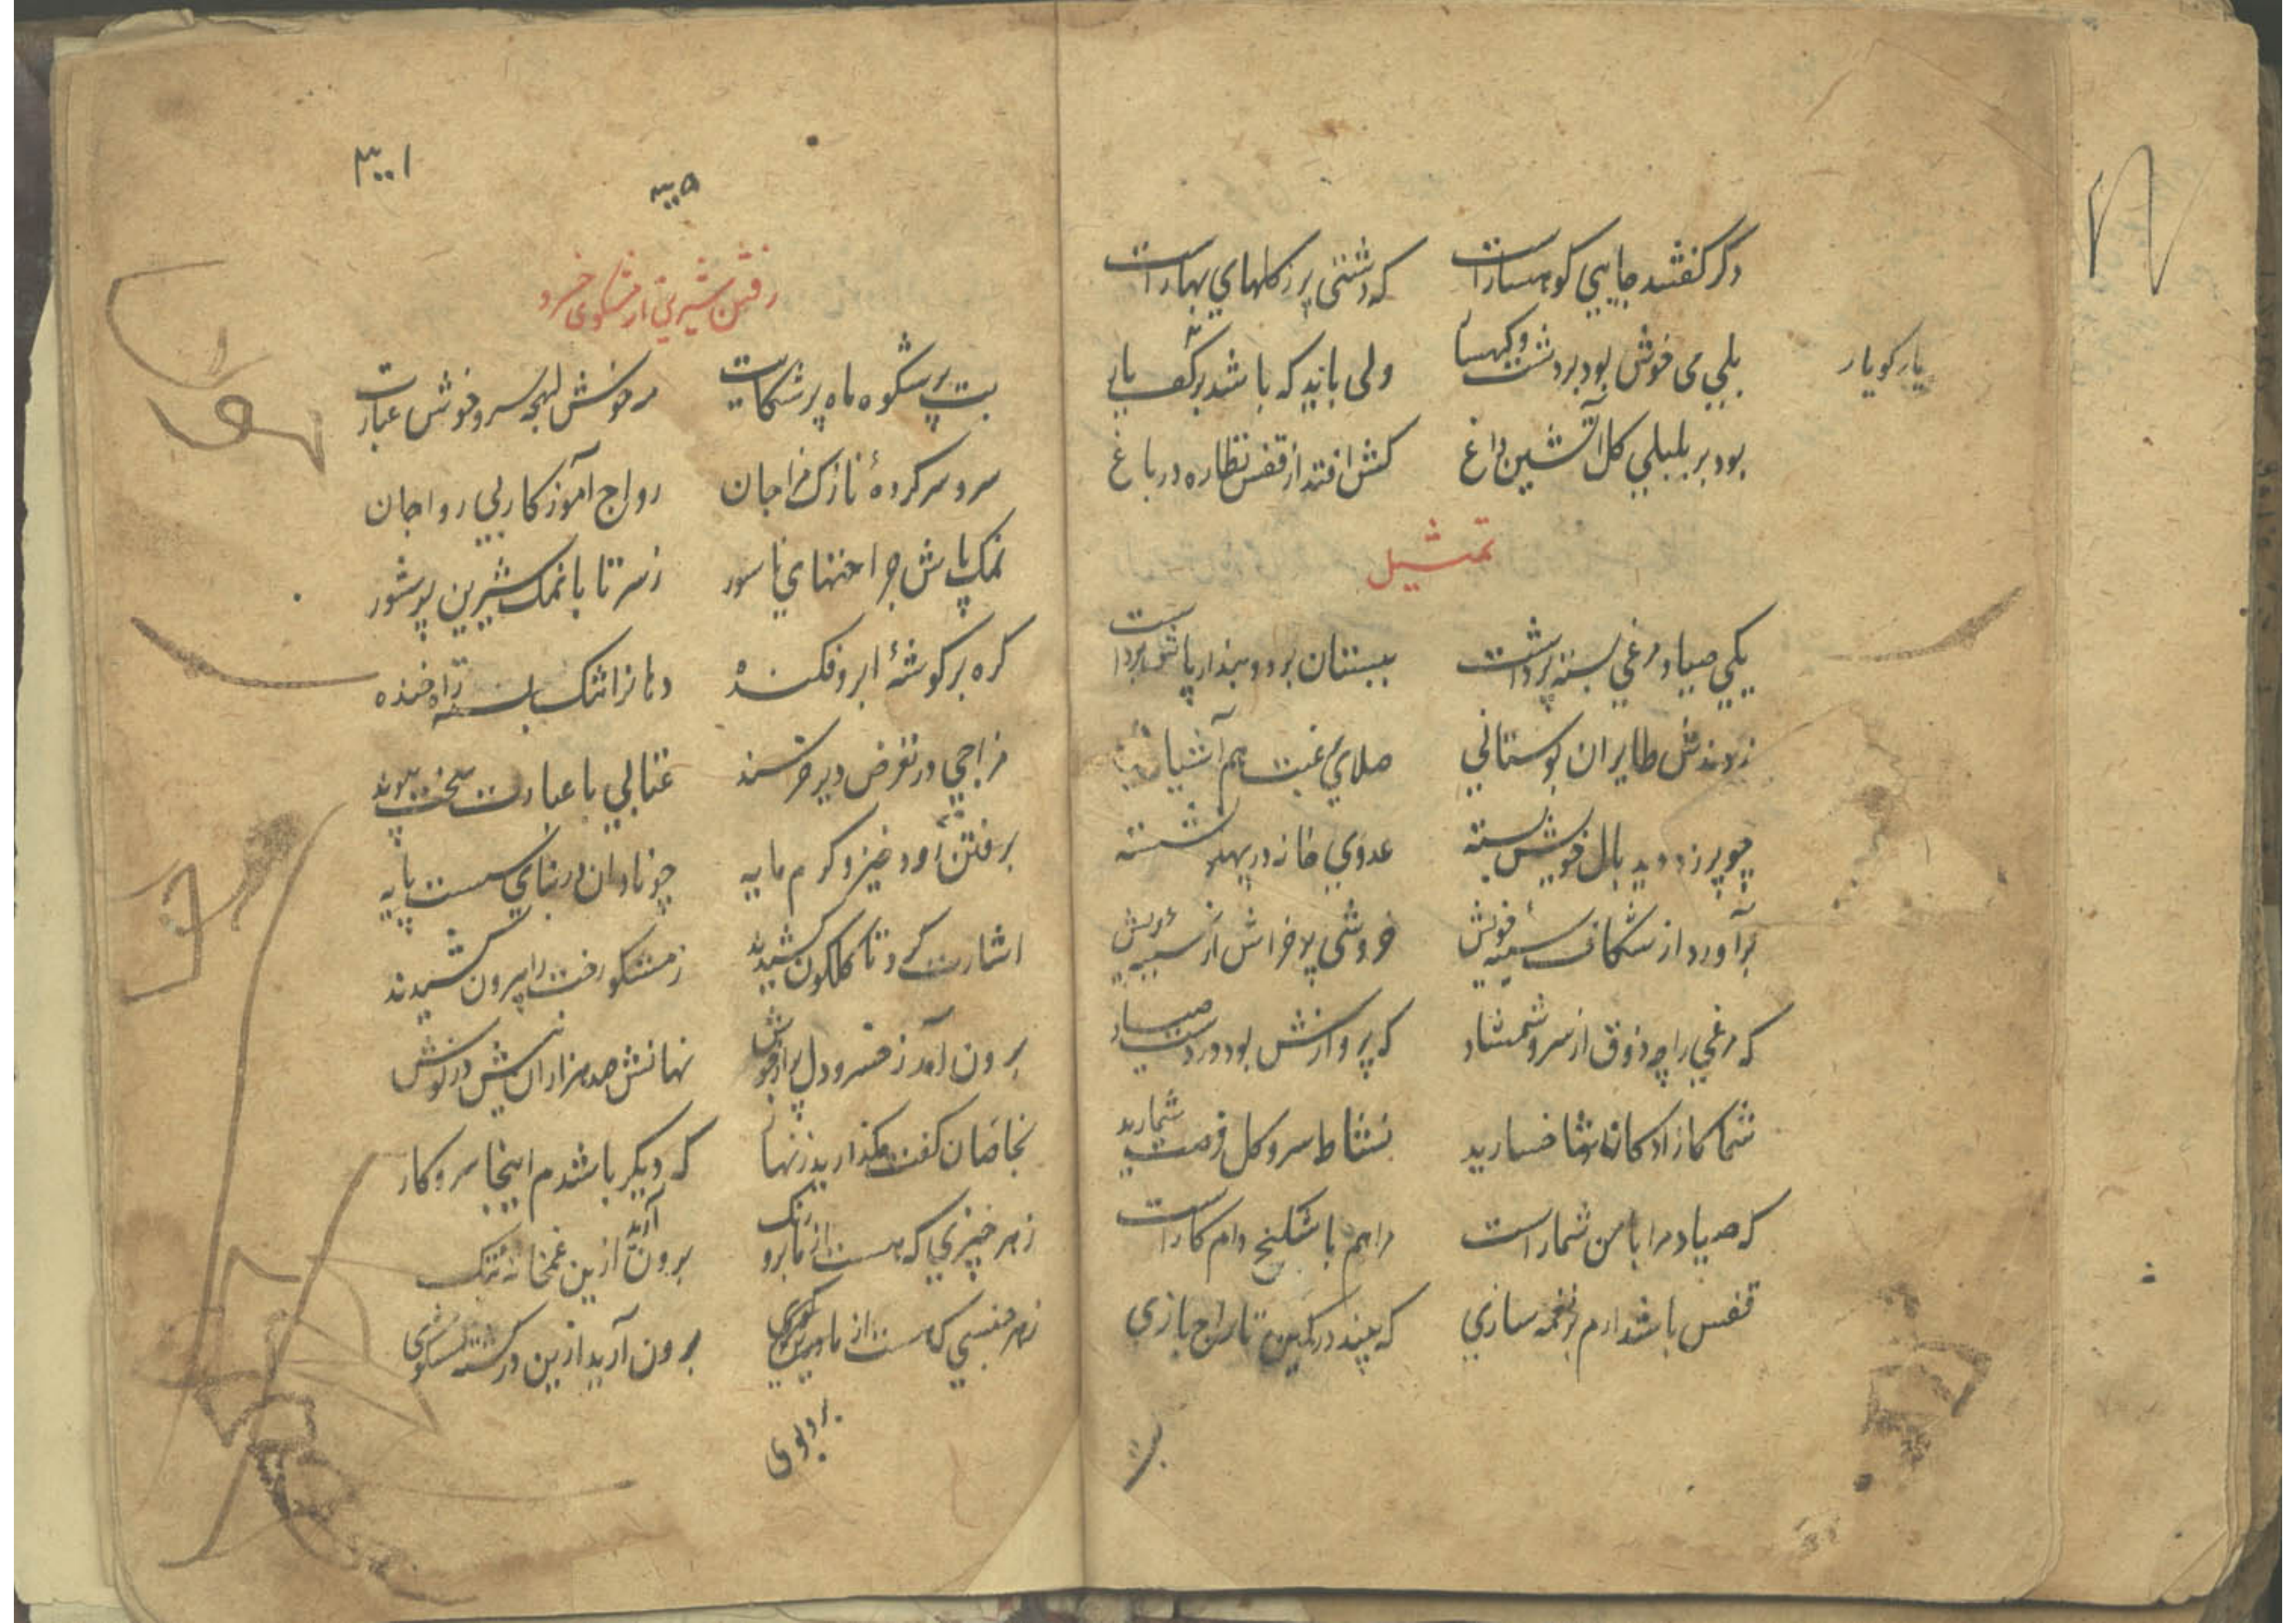 دگر گفتند جایی کوهسارست که دشتی پر ز کلهای بهارست
بلی می خوش بود بر دشت وکهسا ولی باید که باشد بر کف یار
یار کو یار
بود بر بلبلی کل آتشین داغ کش افتد از قفس نظاره در باغ
تمثیل
یکی صیاد مرغی بسته پر داشت ببستان برد و بند از پاش برداشت
زدندش طایران بوستانی صلای رغبت هم آشیانی
چو پر زد دید بال خویش بسته عدوی خانه در پهلو نشسته
برآورد از شکاف سینهٔ خویش خروشی پر خراش از سینهٔ ریش
که مرغی را چه ذوق از سرو و شمشاد که پروازش بود در دست صیاد
شما کازادکان شاخسارید نشاط سرو و کل فرصت شمارید
که صیاد مرا با من شمارست مرا هم با شکنج دام کارست
قفس باشد ارم بر نغمه سازی که بیند در کمین تاراج بازی
۳۰۰۱
۳۰۰۵
رفتن شیرین از مشکوی خسرو
بت پرشکوه ماه پرشکایت مه خوش لهجه سرو خوش عبارت
سر و سرکردهٔ نازک مزاجان رواج آموز کار بی رواجان
نمک پاش جراحتهای ناسور ز سر تا پا نمک شیرین پرشور
کره بر کوشهٔ ابرو فکنده دهان را تنک بسته راه خنده
مزاجی در تعرض دیر خرسند عتابی با عبارت سخت پیوند
برفتن زود خیز و کرم مایه چو نادان در بنای سست پایه
اشارت کرد تا کلکون کشیدند ز مشکو رخت را بیرون کشیدند
برون آمد ز خسرو دل پر از جوش نهانش صد هزاران نیش در نوش
بخاصان کفت مکذارید زنهار که دیکر باشدم اینجا سر و کار
ز هر چیزی که هست از ما برو رنک برون آرید ازین غمخانهٔ تنک
ز هر جنسی که هست از ما برین کوی برون آرید ازین در کشته مشکوی
بر دوی